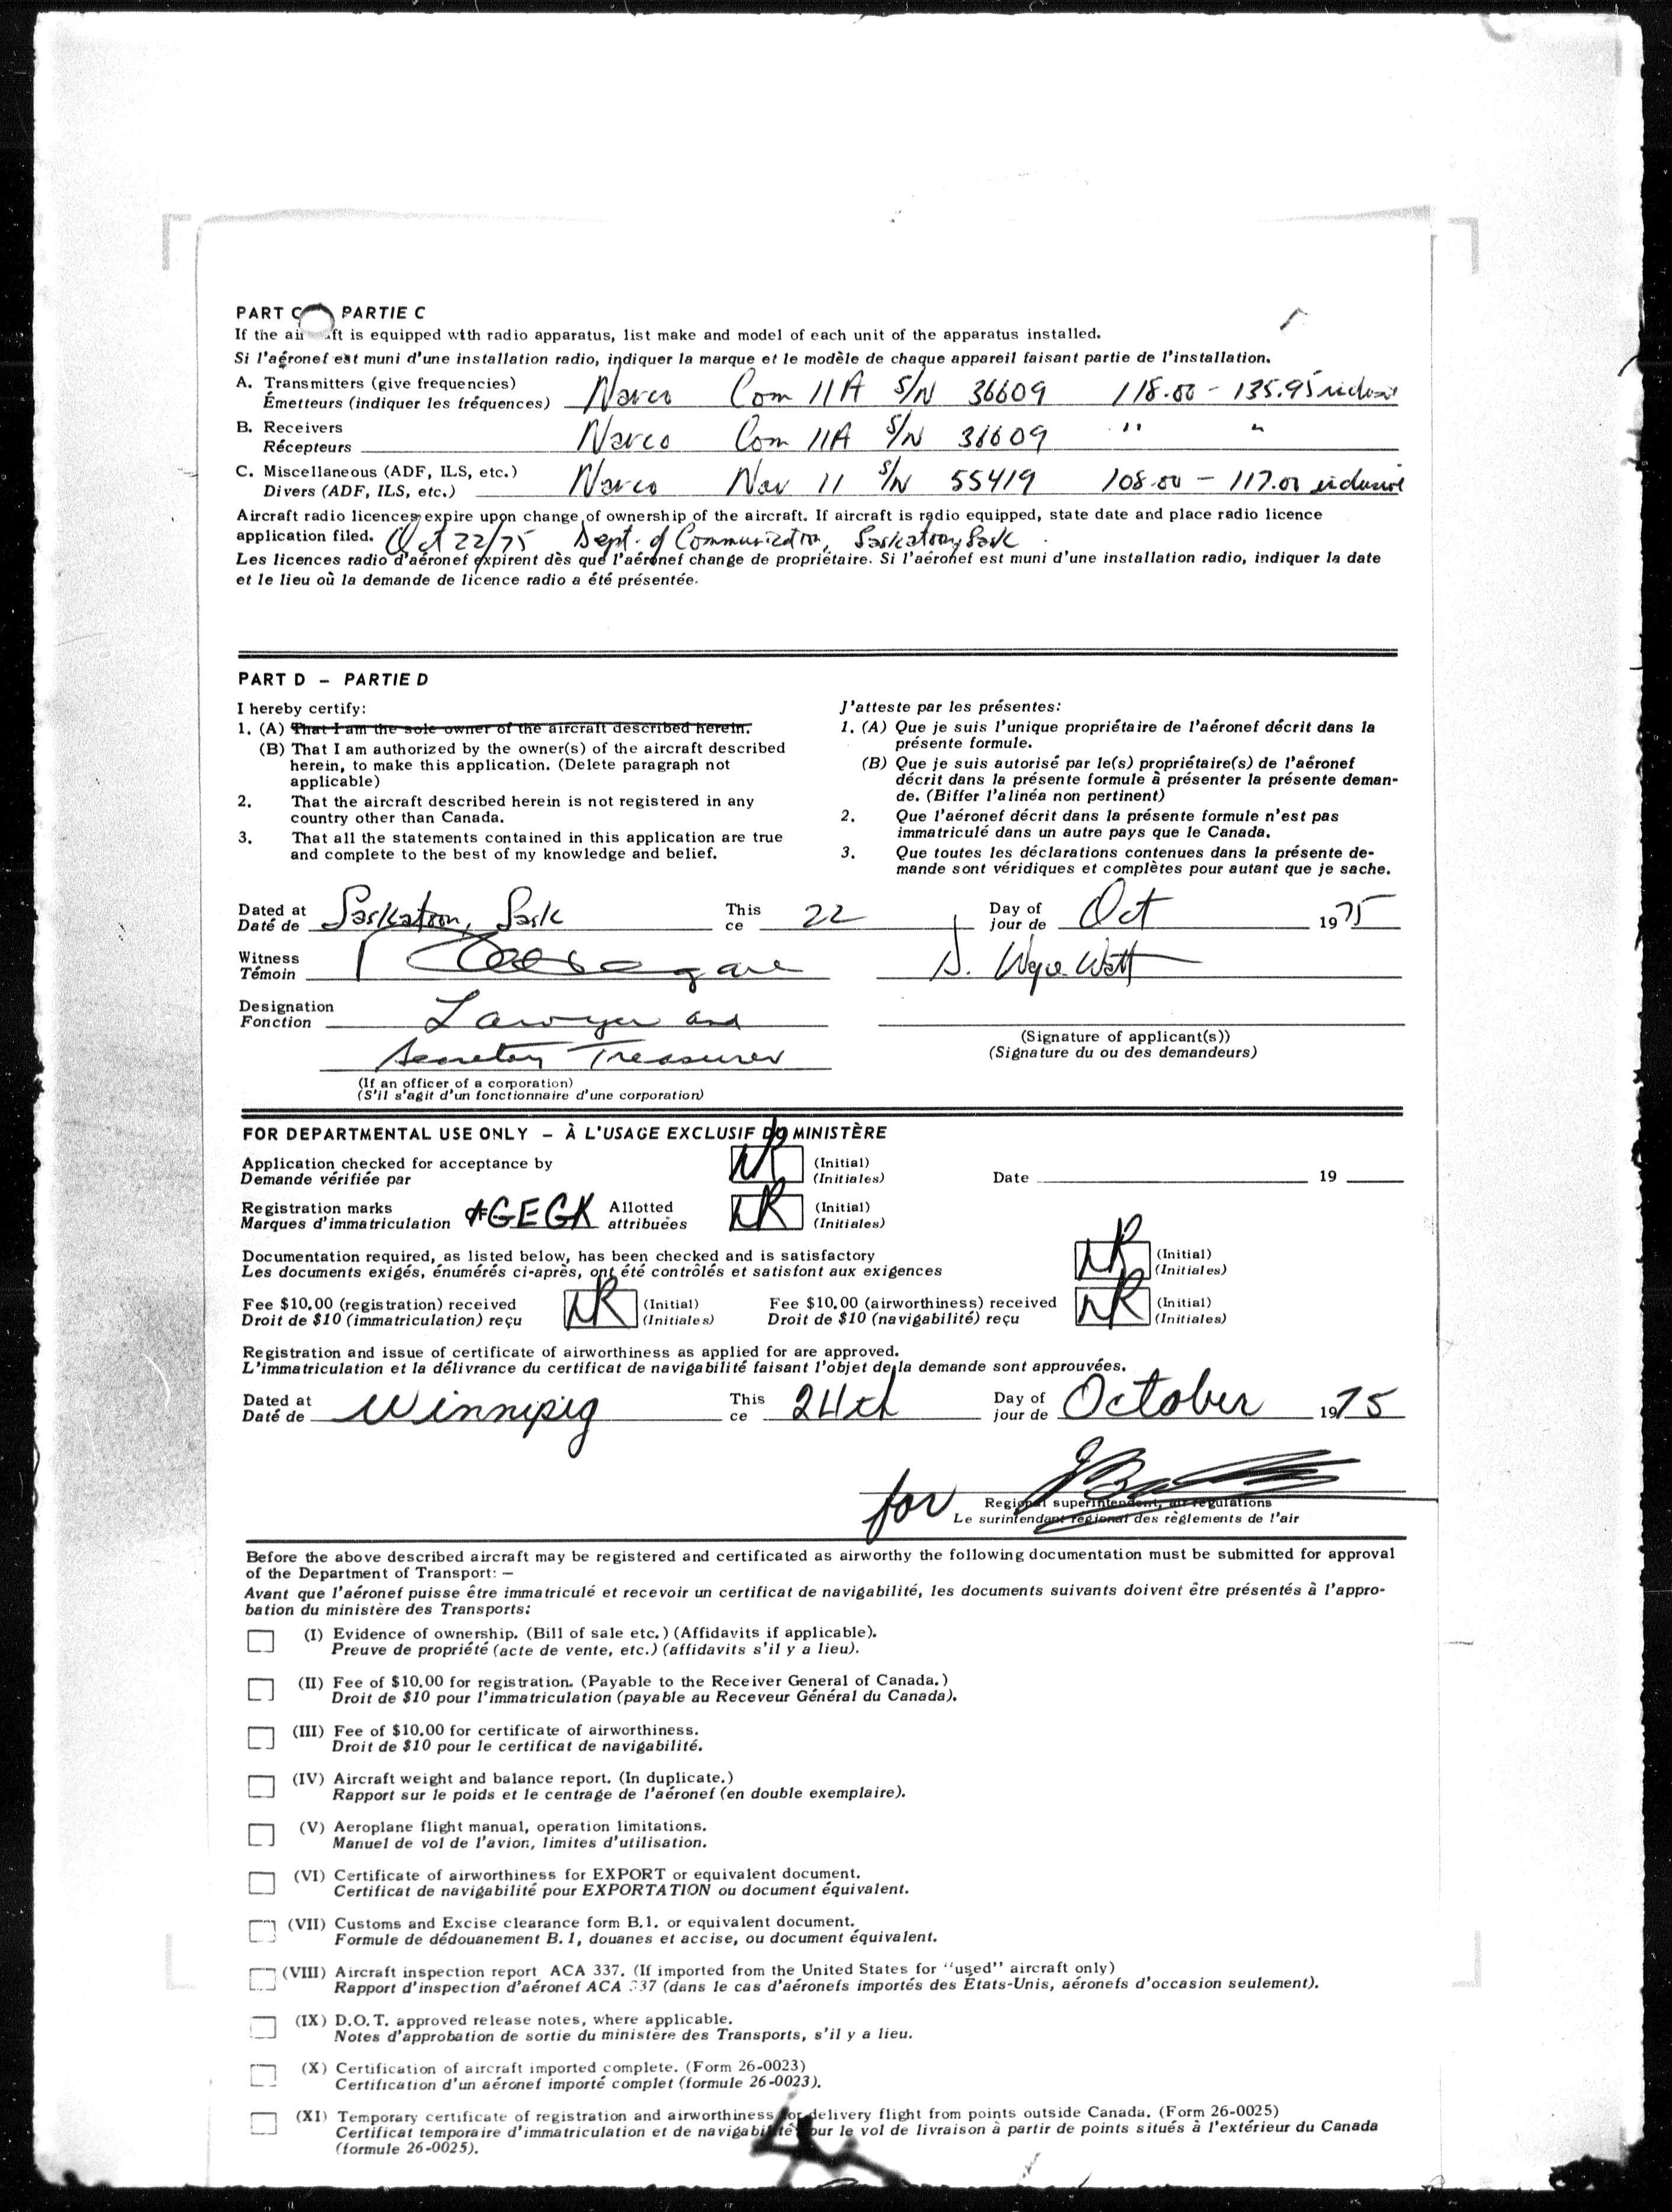 PART C PARTIE C
If the aircraft is equipped with radio apparatus, list make and model of each unit of the apparatus installed.
Si l'aéronef est muni d'une installation radio, indiquer la marque et le modèle de chaque appareil faisant partie de l'installation.
A. Transmitters (give frequencies)
Émetteurs (indiquer les fréquences) Narco Com 11A S/N 36609 118.00 - 135.95 inclusive
B. Receivers
Récepteurs Narco Com 11A S/N 36609 " "
C. Miscellaneous (ADF, ILS, etc.)
Divers (ADF, ILS, etc.) Narco Nav 11 S/N 55419 108.00 - 117.00 inclusive
Aircraft radio licences expire upon change of ownership of the aircraft. If aircraft is radio equipped, state date and place radio licence
application filed. Oct 22/75 Dept. of Communication, Saskatoon, Sask.
Les licences radio d'aéronef expirent dès que l'aéronef change de propriétaire. Si l'aéronef est muni d'une installation radio, indiquer la date
et le lieu où la demande de licence radio a été présentée.
PART D – PARTIE D
I hereby certify:
1. (A) That I am the sole owner of the aircraft described herein.
(B) That I am authorized by the owner(s) of the aircraft described
herein, to make this application. (Delete paragraph not
applicable)
2. That the aircraft described herein is not registered in any
country other than Canada.
3. That all the statements contained in this application are true
and complete to the best of my knowledge and belief.
J'atteste par les présentes:
1. (A) Que je suis l'unique propriétaire de l'aéronef décrit dans la
présente formule.
(B) Que je suis autorisé par le(s) propriétaire(s) de l'aéronef
décrit dans la présente formule à présenter la présente deman-
de. (Biffer l'alinéa non pertinent)
2. Que l'aéronef décrit dans la présente formule n'est pas
immatriculé dans un autre pays que le Canada.
3. Que toutes les déclarations contenues dans la présente de-
mande sont véridiques et complètes pour autant que je sache.
Dated at This Day of
Daté de Saskatoon, Sask ce 22 jour de Oct 1975
Witness
Témoin
Designation
Fonction Lawyer and
Secretary Treasurer
(Signature of applicant(s))
(Signature du ou des demandeurs)
(If an officer of a corporation)
(S'il s'agit d'un fonctionnaire d'une corporation)
FOR DEPARTMENTAL USE ONLY – À L'USAGE EXCLUSIF DU MINISTÈRE
Application checked for acceptance by (Initial) Date 19
Demande vérifiée par (Initiales)
Registration marks GEGK Allotted (Initial)
Marques d'immatriculation attribuées (Initiales)
Documentation required, as listed below, has been checked and is satisfactory (Initial)
Les documents exigés, énumérés ci-après, ont été contrôlés et satisfont aux exigences (Initiales)
Fee $10.00 (registration) received (Initial) Fee $10.00 (airworthiness) received (Initial)
Droit de $10 (immatriculation) reçu (Initiales) Droit de $10 (navigabilité) reçu (Initiales)
Registration and issue of certificate of airworthiness as applied for are approved.
L'immatriculation et la délivrance du certificat de navigabilité faisant l'objet de la demande sont approuvées.
Dated at This Day of
Daté de Winnipeg ce 24th jour de October 1975
for Regional superintendent, air regulations
Le surintendant régional des règlements de l'air
Before the above described aircraft may be registered and certificated as airworthy the following documentation must be submitted for approval
of the Department of Transport: –
Avant que l'aéronef puisse être immatriculé et recevoir un certificat de navigabilité, les documents suivants doivent être présentés à l'appro-
bation du ministère des Transports:
(I) Evidence of ownership. (Bill of sale etc.) (Affidavits if applicable).
Preuve de propriété (acte de vente, etc.) (affidavits s'il y a lieu).
(II) Fee of $10.00 for registration. (Payable to the Receiver General of Canada.)
Droit de $10 pour l'immatriculation (payable au Receveur Général du Canada).
(III) Fee of $10.00 for certificate of airworthiness.
Droit de $10 pour le certificat de navigabilité.
(IV) Aircraft weight and balance report. (In duplicate.)
Rapport sur le poids et le centrage de l'aéronef (en double exemplaire).
(V) Aeroplane flight manual, operation limitations.
Manuel de vol de l'avion, limites d'utilisation.
(VI) Certificate of airworthiness for EXPORT or equivalent document.
Certificat de navigabilité pour EXPORTATION ou document équivalent.
(VII) Customs and Excise clearance form B.1. or equivalent document.
Formule de dédouanement B.1, douanes et accise, ou document équivalent.
(VIII) Aircraft inspection report ACA 337. (If imported from the United States for "used" aircraft only)
Rapport d'inspection d'aéronef ACA 337 (dans le cas d'aéronefs importés des États-Unis, aéronefs d'occasion seulement).
(IX) D.O.T. approved release notes, where applicable.
Notes d'approbation de sortie du ministère des Transports, s'il y a lieu.
(X) Certification of aircraft imported complete. (Form 26-0023)
Certification d'un aéronef importé complet (formule 26-0023).
(XI) Temporary certificate of registration and airworthiness for delivery flight from points outside Canada. (Form 26-0025)
Certificat temporaire d'immatriculation et de navigabilité pour le vol de livraison à partir de points situés à l'extérieur du Canada
(formule 26-0025).